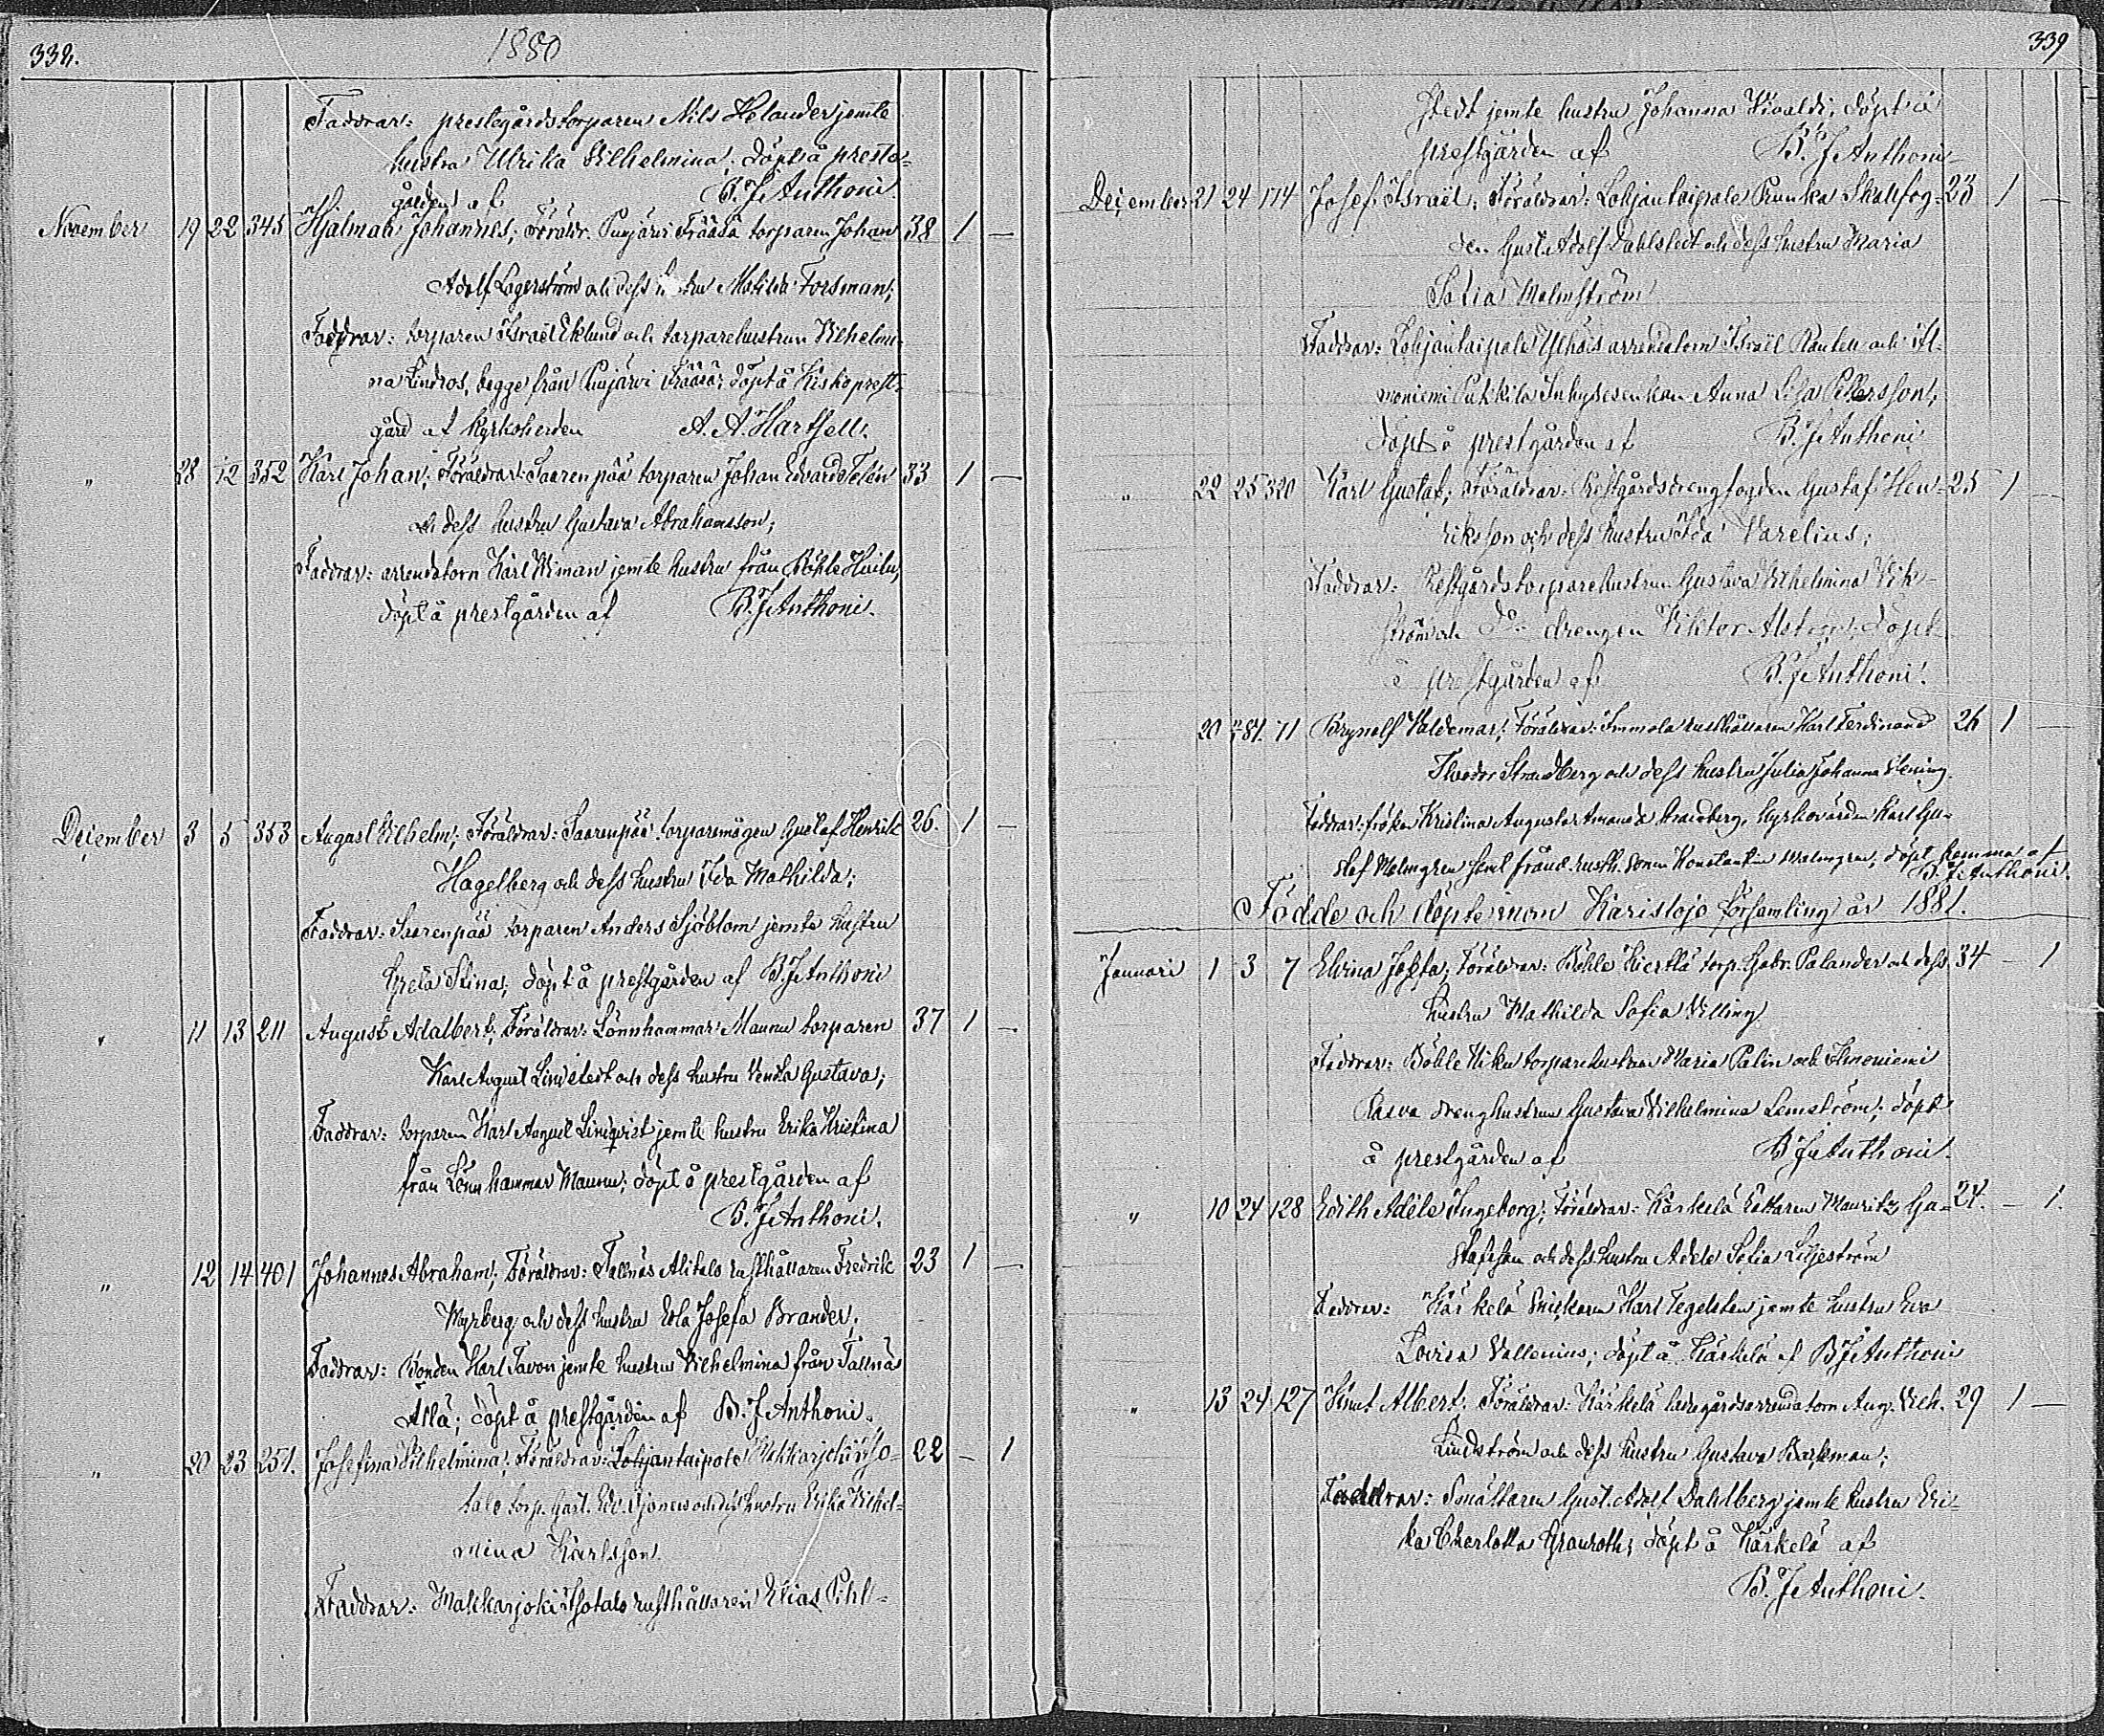 338.
1880
Faddrar: prestegårdstorparen Nils Helander jemte
hustru Ulrika Vilhelmina; döpt å preste-
gården af B. F. Anthoni
November 19 22 345 Hjalmar Johannes; Föräldr. Puujärvi Fräåsä torparen Johan 38 1 —
Adolf Lagerström och dess hustru Matilda Forsman;
Faddrar: torparen Israël Eklund och torparehustrun Vilhelmi-
na Lindros, begge från Puujärvi Fräåsä; döpt å Kisko prest-
gård af kyrkoherden A. A. Hartsell.
„ 28 12 352 Karl Johan; Föräldrar: Saarenpää torparen Johan Edvard Telén 33 1 —
och dess hustru Gustava Abrahamsson;
Faddrar: arrendatorn Karl Wiman jemte hustru från Böhle
döpt å prestgården af B. F. Anthoni.
December 3 5 353 August Vilhelm; Föräldrar: Saarenpää torparemågen Gustaf Henrik 26. 1 —
Hagelberg och dess hustru Ida Mathilda;
Faddrar: Saarenpää torparen Anders Sjöblom jemte hustru
Greta Stina; döpt å prestgården af B. F. Anthoni
„ 11 13 211 August Adalbert; Föräldrar: Lönnhammar Maunu torparen 37 1 —
Karl August Lindstedt och dess hustru Venda Gustava;
Faddrar: torparen Karl August Lindqvist jemte hustru Erika Kristina
från Lönnhammar Maunu; döpt å prestgården af
B. F. Anthoni.
„ 12 14 401 Johannes Abraham; Föräldrar: Tallnäs Alitalo rusthållaren Fredrik 23 1 —
Myrberg och dess hustru Eda Josefa Brander;
Faddrar: Bonden Karl Tavon jemte hustru Vilhelmina från Tallnäs
Alla; döpt å prestgården af B. F. Anthoni.
„ 20 23 251. Josefina Vilhelmina; Föräldrar: Lohjantaipale Makkarjoki Iso- 22 — 1
talo torp. Gust. Edv. och dess hustru Erika Vilhel-
mina Karlsson.
Faddrar: Makkarjoki Isotalo rusthållaren Elias Pihl-
339
stedt jemte hustru Johanna Kivaldi; döpt å
prestgården af B. F. Anthoni
December 21 24 174 Josef Israël; Föräldrar: Lohjantaipale Skallfog- 23 1 —
den Gust. Adolf Dahlstedt och dess hustru Maria
Sofia Malmström
Faddrar: Lohjantaipale Ylhäis arrendatorn Israël Ranten och Il-
moniemi Pukkila Inhyseskan Anna Lisa Pettersson;
döpt å prestgården af B. F. Anthoni
„ 22 25 320 Karl Gustaf; Föräldrar: Prestgårdsdrengfogden Gustaf Hen- 25 1 —
riksson och dess hustru Ida Varelius;
Faddrar: Prestgårdstorparehustrun Gustava Vilhelmina Vik-
ström och D:o drengen Viktor Alström; döpt
å prestgården af B. F. Anthoni.
20 81. 11 Brynolf Valdemar; Föräldrar: Immola rusthållaren Karl Ferdinand 26 1 —
Theodor Strandberg och dess hustru Julia Johanna Flening.
Faddrar: fröken Kristina Augusta Amanda Strandberg, kyrkovärden Karl Gu-
staf Malmgren samt rusth. sonen Konstantin Malmgren; döpt hemma af
B. F. Anthoni.
Födde och döpte inom Karislojo församling år 1881.
Januari 1 3 7 Elvina Josefa; Föräldrar: Böhle Hierklä torp. Gabr. Palander och dess 34 — 1
hustru Mathilda Sofia Villing
Faddrar: Böhle Hiku torparehustrun Maria Palin och Ilmoniemi
Rasva drenghustrun Gustava Vilhelmina Lemström; döpt
å prestgården af B. F. Anthoni.
„ 10 24 128 Edith Adéle Ingeborg; Föräldrar: Kärkelä Rättaren Mauritz Gu- 24. — 1.
stafsson och dess hustru Adele Sofia Liljeström
Faddrar: Kärkelä Snickaren Karl Tegelsten jemte hustru Eva
Lovisa Vallenius; döpt å Kärkelä af B. F. Anthoni
„ 13 24 127 Knut Albert; Föräldrar: Kärkelä ladugårdsarrendatorn Aug. Vilh. 29 1 —
Lindström och dess hustru Gustava Backman;
Faddrar: Smältaren Gust. Adolf Dahlberg jemte hustru Eri-
ka Charlotta Granroth; döpt å Kärkelä af
B. F. Anthoni.